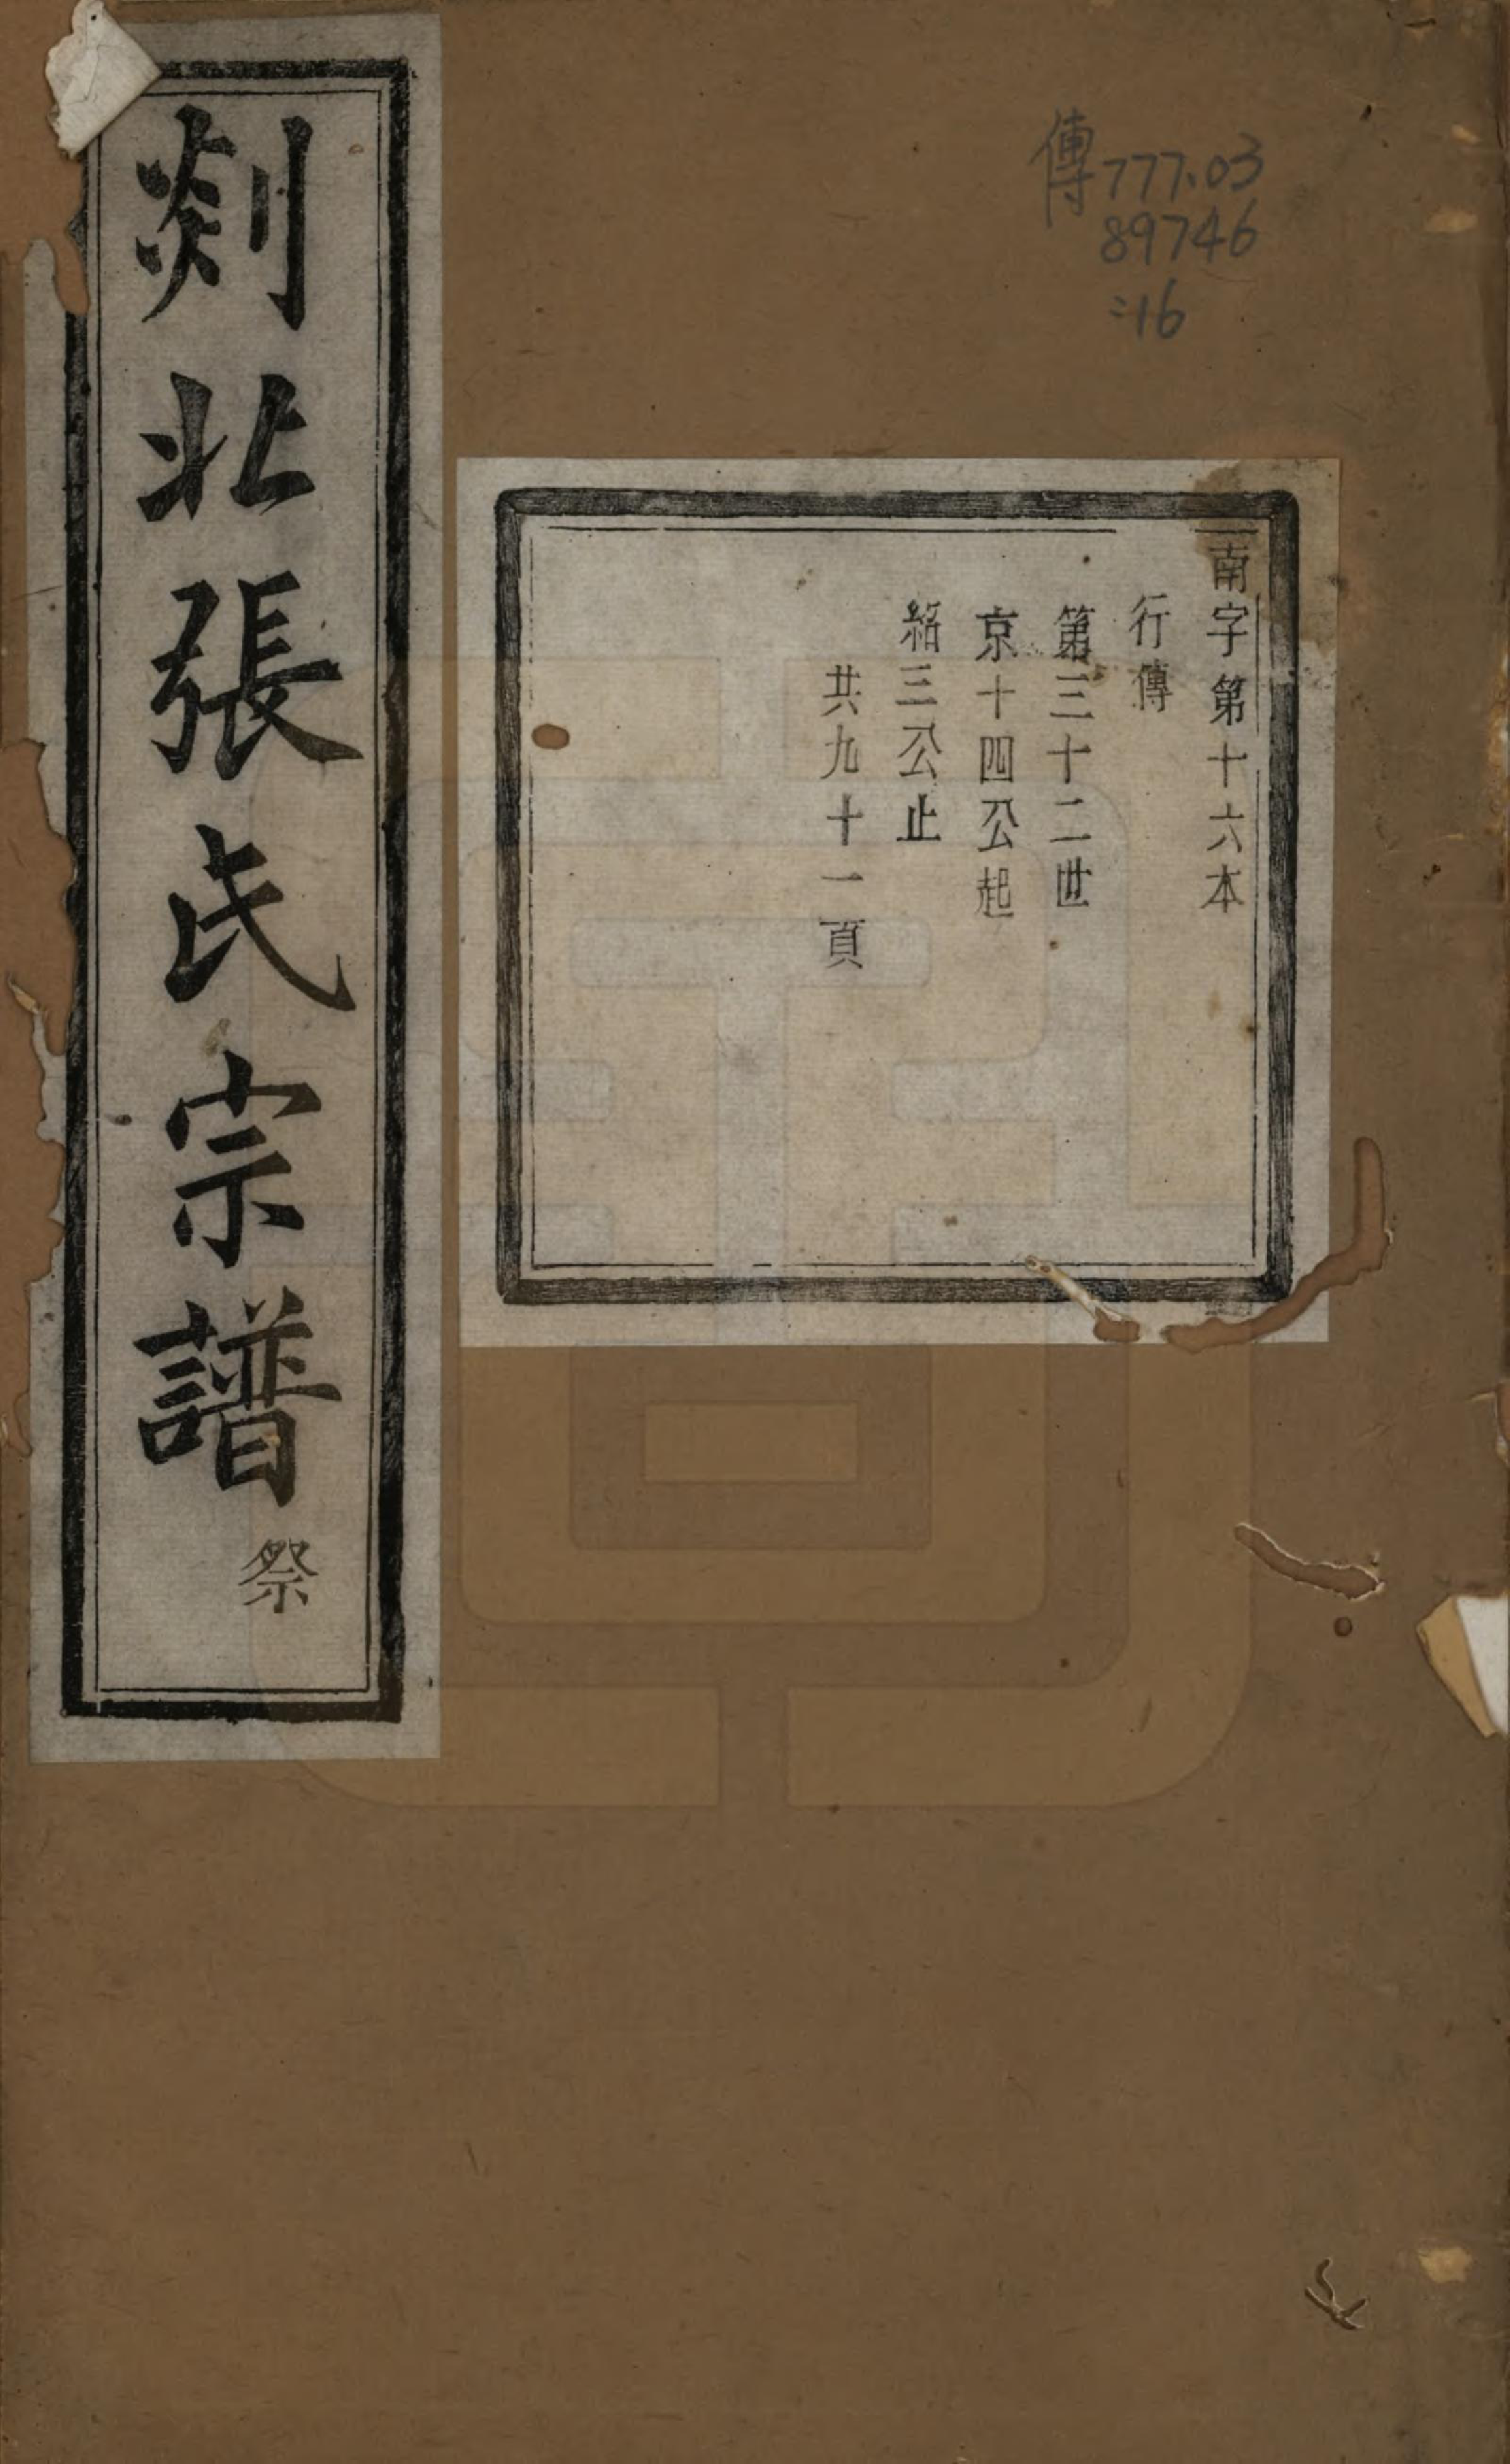 傳777.03
89746
:16
南字第十六本
行傳
第三十二世
京十四公起
紹三公止
共九十一頁
剡北張氏宗譜
祭